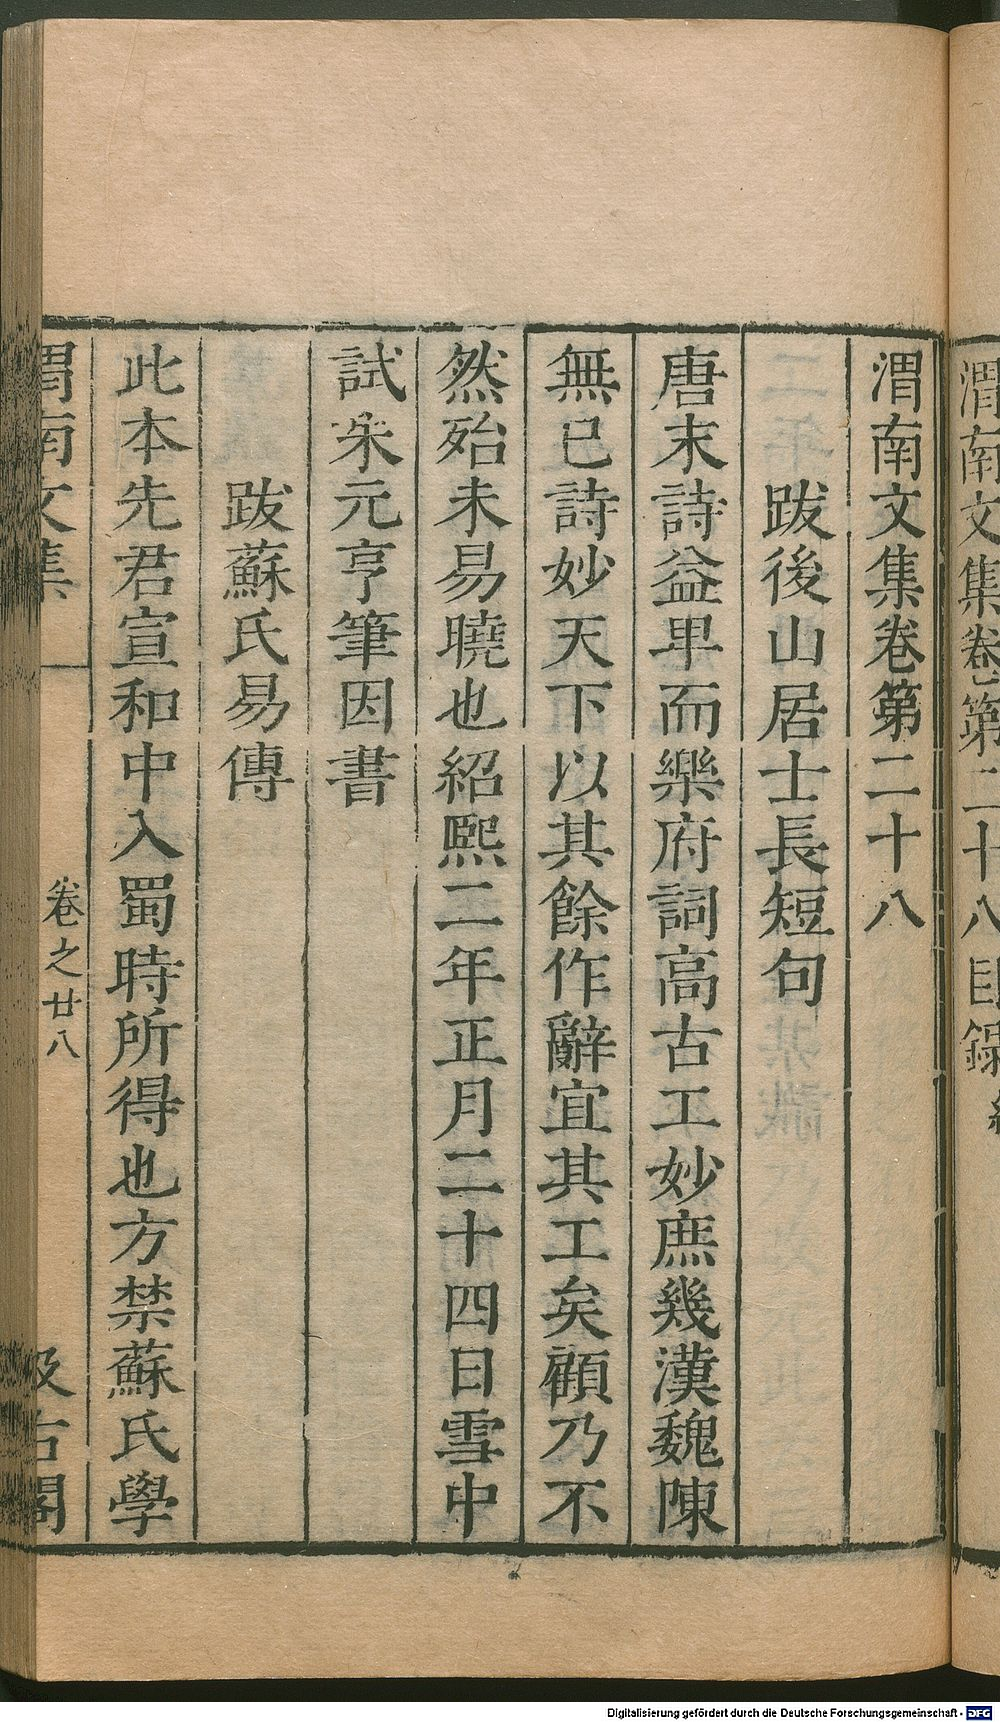 渭南文集卷第二十八目錄
渭南文集卷第二十八
跋後山居士長短句
唐末詩益卑而樂府詞高古工妙庶幾漢魏陳
無已詩妙天下以其餘作辭宜其工矣顧乃不
然殆未易曉也紹熙二年正月二十四日雪中
試朱元亨筆因書
跋蘇氏易傳
此本先君宣和中入蜀時所得也方禁蘇氏學
渭南文集
卷之廿八
汲古閣
Digitalisierung gefördert durch die Deutsche Forschungsgemeinschaft - DFG